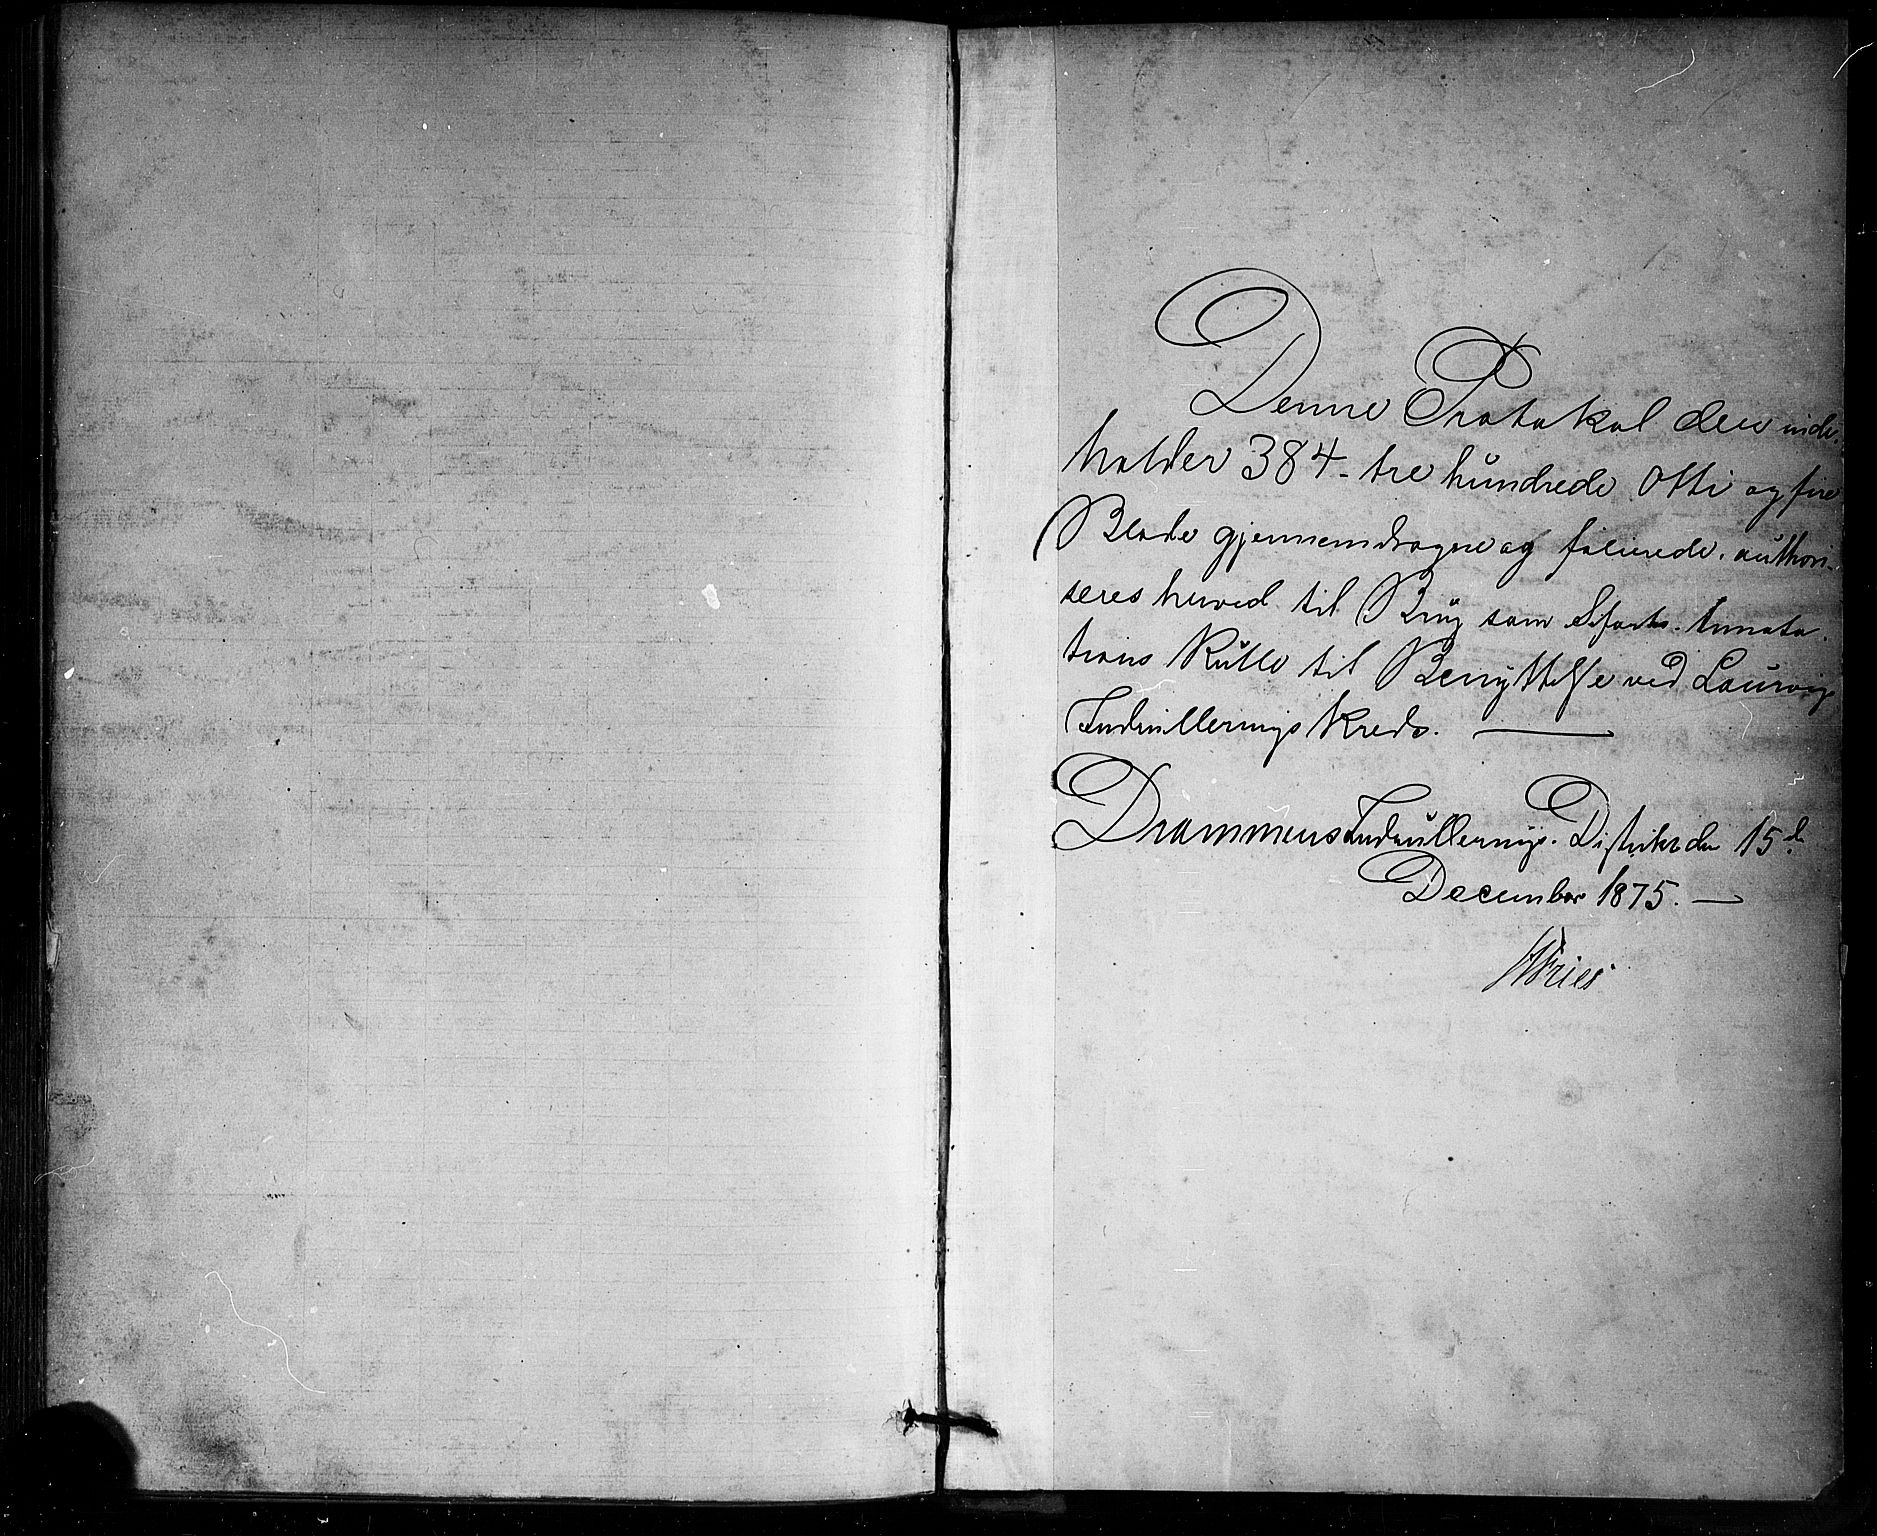 Denne Protokol den inde-
holder 384 - tre hundrede otti og fire
Blade gjennemdragne og folierede, authori-
seres herved til Brüg som Søfarts- Annota-
tions Rülle til Benyttelse ved Laurvigs
Indrülleringskreds. —
Drammens Indrüllerings- Distrikt den 15de
December 1875. —
Fries